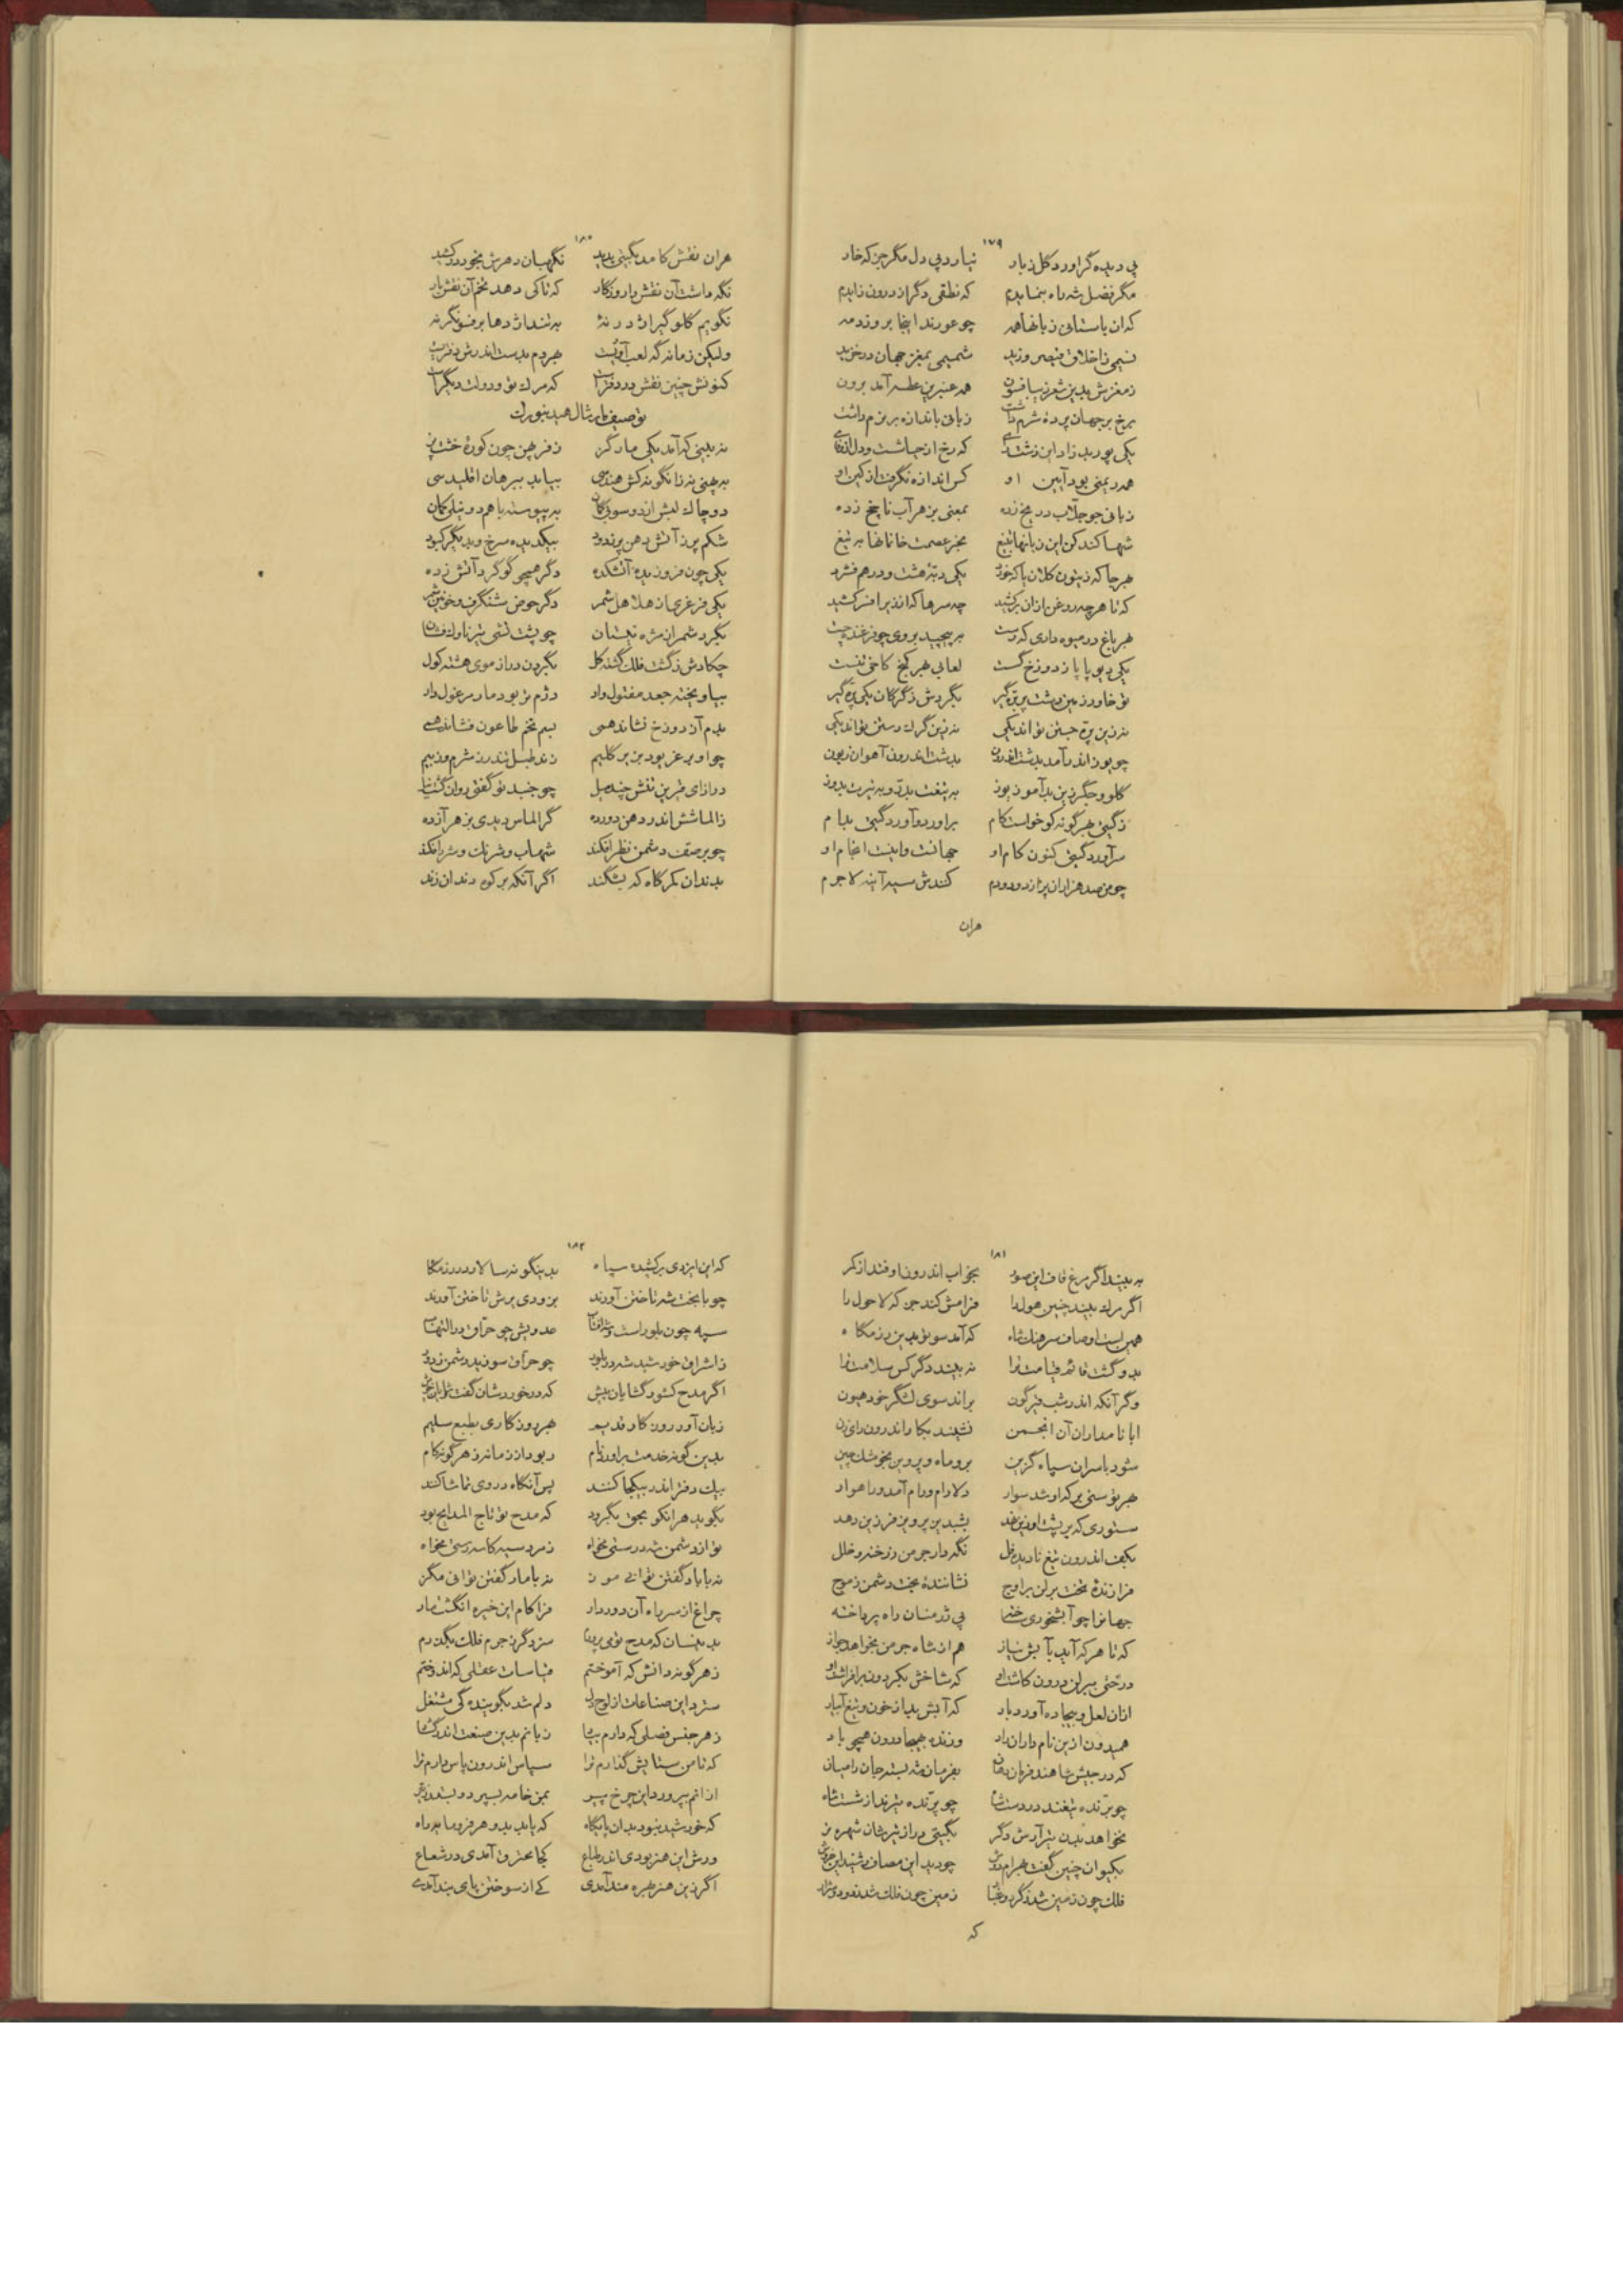 ۱۷۹
پی دیده گر اورد گل زباد نیارد پی دل مگر جز که خار
مگر فضل شه راه بنمایدم که نطقی دگر از درون زایدم
که ان باستانی زبانها همه چو عورند اینجا بروز دمه
نسیمی ز اخلاق قیصر وزید شمیمی بمغز جهان در خزید
ز مغزش بدین شعر زیبا فسون همه عنبرین عطسه آمد برون
برخ بر جهان پرده شرم داشت زبانی باندازه بر نزم داشت
یکی پور بد زاد این زشت که رخ از حیا شست و دل از
همه ریمنی بود آیین او کس اندازه نگرفت از کین او
زبانی چو جلاب در یخ زده بمعنی بزهر آب ناپخ زده
شها کند کن این زبانها بتیغ بخز عصمت خانمانها به تیغ
هر جا که زیتون کلان یا که خورد یکی دبه هشت و درهم فشرد
که تا هر چه روغن ازان برکشید چه سرها که اندر برافسر کشید
هر باغ در میوه داری که رست بر پیچید بروی چو فرغند چست
یکی دیو پا باز دوزخ گست لعابی هر کنج کاخی تنست
تو خاور زمین دشت پر بره گیر بگردش ز گرگان یکی پره گیر
نه زین پره جستن تواند یکی نه زین گرگ رستن تواند یکی
چو یوز اندر آمد بدشت اندرون بدشت اندرون آهوان زبون
گلو و جگر زین بد آموز یوز به تیغت بدر و به تیرت بدوز
ز گیتی هر گونه کو خواست کام براورد و آورد گیتی بدام
سر آورد گیتی کنون کام او جهانت و اینت انجام او
چو من صد هزاران پر از درد و دم کندش سپر آینه لا جرم
هران
۱۸۰
هران نقش کامد بگیتی پدید نگهبان دهرش بخود در کشید
نگه داشت آن نقش را روزگار که تا کی دهد تخم آن نقش بار
نگویم گلوگیر اژدر نۀ به تندی اژدها بر فسونگر نه
ولیکن زمانه گه لعب اوست هر دم بدست اندرش دفتریست
کنونش چنین نقش در دفتر است که مرگ تو و دولت دیگر است
توصیف مار مثال صید بیوران
نه بینی که آمد یکی مار گرز ز فر چین چون کوره خشت پز
به پهنی نه زانگونه کش هندسی بیابد ببرهان اقلیدسی
دو چاک لبش از دو سوی کمان به پیوسته با هم دو نیلی کمان
شکم پر ز آتش دهن پر ز دود بیک دیده سرخ و بدیگر کبود
یکی چون فروزنده آتشکده دگر همچو گوگرد آتش زده
یکی فرغری از هلاهل شمر دگر حوض شنگرف و خونین شمر
بگرد شمر از مژه نیستان چو پشت کشی تیر ناوک فشان
چکادش ز گشت فلک گشته کل بگردن دراز موی هشته کول
بیاویخته جعد مفتول وار دژم تر بود مار مرغول وار
بدم آذر دوزخ نشاند همی بسم تخم طاعون فشاند همی
چو او بر عز بود بز بر گلیم زند طبل تندر ز شرم و ز بیم
درازای فربن تنش چند میل چو جنبد تو گفتی روان گشت نیل
ز الماشش اندر دهن دو رده گر الماس دیدی بزهر آزده
چو بر صف دشمن نظر افکند شهاب و شرنگ و شرر افکند
بدندان کمرگاه که بشکند اگر آنکه بر کوه دندان زند
۱۸۱
به بیند اگر مرغ قاف این صور بخواب اندرون اوفتد از کمر
اگر مرگ بیند چنین هول را فرامش کند جز که لا حول را
همین است اوصاف سرهنگ شاه که آمد سوی تو بدین رزمگاه
بدو گشت قائم قیامت ترا نه بیند دگر کس سلامت ترا
وگر آنکه اندر شب قیر گون براند سوی لشگر خود هیون
ابا نامداران آن انجمن نشیند بکار اندرون رای زن
شود با سران سپاه گزین برو ماه و پروین بخوشک چین
هر توسنی بر که او شد سوار دلارام و رام آمد و راهوار
ستوری که بر پشت او زین نهد بشبدیز پرویز فرزین دهد
بکف اندرون تیغ نادیده فل نگهدار جرمن ز رخنه و خلل
فرازنده تخت برلن براوج نشاننده بخت دشمن ز موج
جهانرا چو آبشخوری ساخته پی ترمنان راه پرداخته
که تا هر که آید بآبش نیاز هم از شاه جرمن بخواهد جواز
درختی ببرلن درون کاشت او که شاخش بگردون برافراشت او
ازان لعل و بیجاده آورد بار که آبش بد از خون و تیغ آبیار
همیدون ازین نام داران راد وزنده هیجا درون همچو باد
که در جیش شاهند فرمان روان بفرمان شه بسته جان را میان
چو برنده تیغند در دست شاه چو پرنده تیرند از شست شاه
نخواهد بدن تیر آرش دگر بگیتی دراز تیرشان شهره تر
بکیوان چنین گفت بهرام دوش چو دید این مصاف و شنید این خروش
فلک چون زمین شد ز گرد و غبار زمین چون فلک شد ز دود و شرار
که
۱۸۲
که این ایزدی برکشیده سپاه بدینگونه سالار در رزمگاه
چو با بخت شه تاختن آورند بزودی برش تاختن آورند
سپه چون بلور است و شه آفتاب عدویش چو حراق در التهاب
ز اشراق خورشید شه در بلور چو حراق سوزد بد دشمن ز دور
اگر مدح کشور گشایان پیش که در خوردشان گفت
زبان آور روزگار قدیم هر روزگاری بطبع سلیم
بدین گونه خدمت براورد نام ربود از زمانه ز هر گونه کام
بیک دفتر اندر بیکجا کنند پس آنگاه در وی تماشا کنند
بگوید هر انکو بحق بگرود که مدح تو تاج المدایح بود
تو از دشمن شه درستی مخواه ز مرد سیه کاسه رستی مخواه
نه با باد گفتن توانی موز نه با مار گفتن توانی مگز
چراغ از سر راه آن دور دار فرا کام این خیره انگشت مار
بدینسان که مدح توی پرورم سزد گر ز جرم فلک بگذرم
ز هر گونه دانش که آموختم قیاسات عقلی که اندوختم
سترد این صناعات از لوح دل دلم شد بگوینده گی مشتغل
ز هر جنس فضلی که دارم بیاد زبانم بدین صنعت اندر گشاد
که تا من ستایش گذارم ترا سپاس اندرون پاس دارم ترا
از انم بپرورد این چرخ پیر بمن خامه بسپرد و بستد
که خورشید نبود بدان پایگاه که باید بدو هر فرومایه راه
ورش این هنر بودی اندر طباع کجا محترق آمدی در شعاع
اگر زین هنر بهره مند آمدی کی از سوختن پای بند آمدی